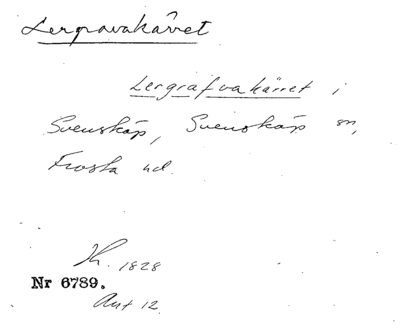 Lergravakärret
Lergrafvakärret i
Svensköp, Svensköp sn,
Frosta hd.
1828
Nr 6789.
Akt 12.